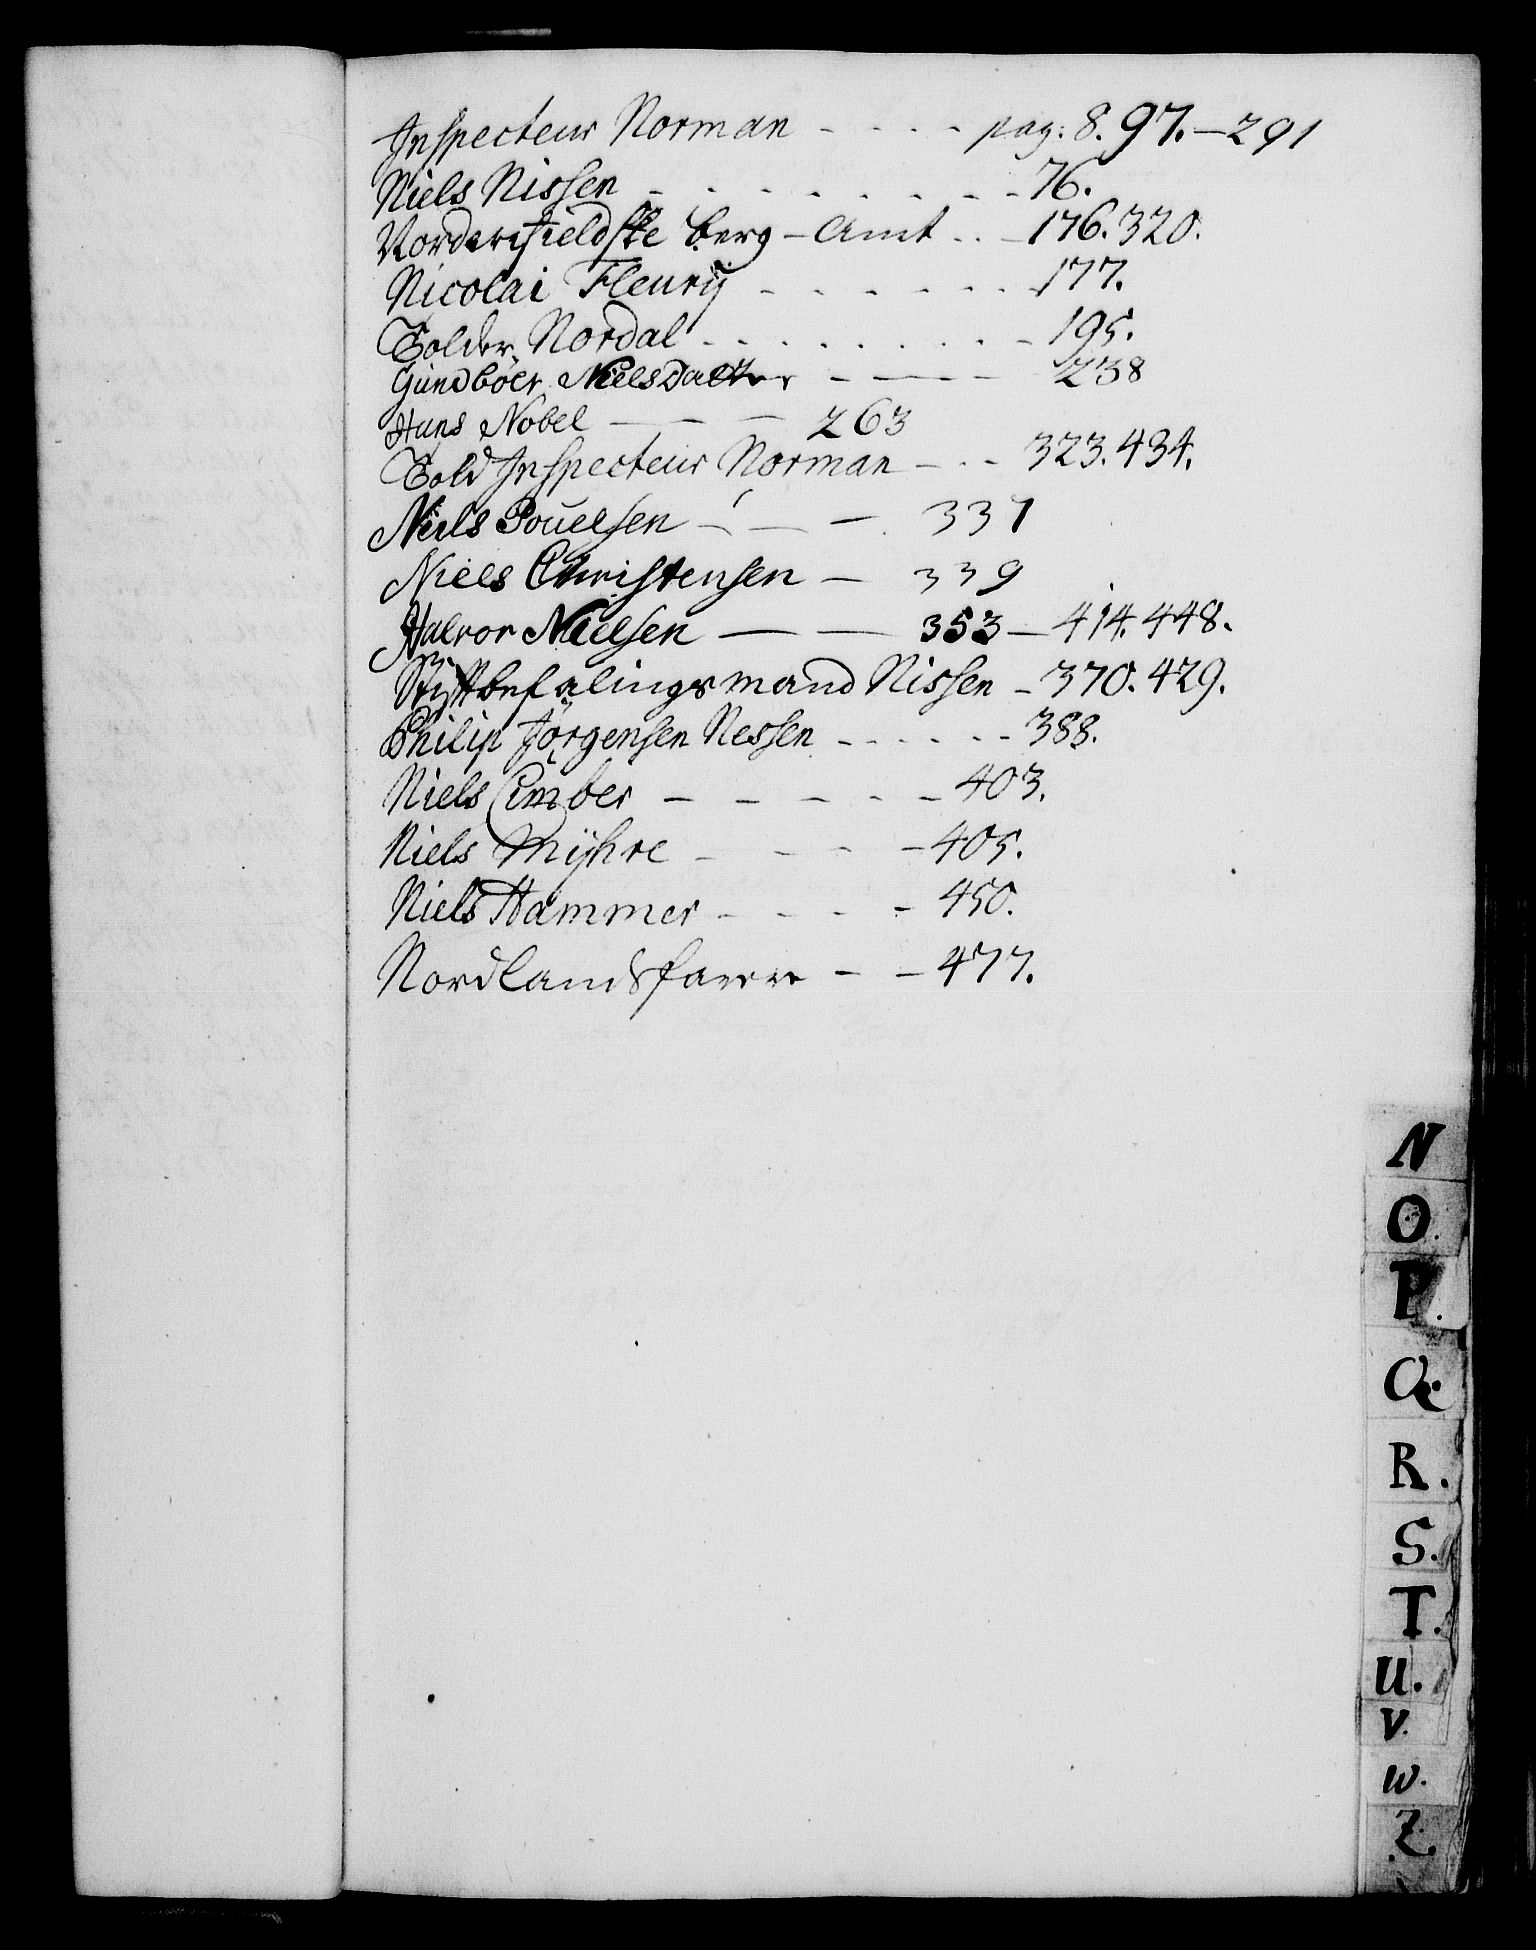 Inspecteur Norman - - - - pag: 8. 97. - 291
Niels Nissen - - - - - - - - 76.
Nordenfieldske berg-Amt - - - 176. 320.
Nicolai Fleurÿ - - - - - - 177.
Tolder Nordal - - - - - - - - 195.
Gundböer Nielsdatter - - - - 238
Hans Nobel - - - 263
Told Inspecteur Norman - - - 323. 434.
Niels Pouelsen - - - 337
Niels Christensen - 339
Halvor Nielsen - - 353 - 414. 448.
Stiftbefalingsmand Nissen - 370. 429.
Philip Jörgensen Nessen - - - - - - 388.
Niels Cimber - - - - - - 403.
Niels Myhre - - - - 405.
Niels Hammer - - - - 450.
Nordlandsfarere - - 477.
N
O.
P.
Q.
R.
S.
T.
U.
V.
W.
Z.